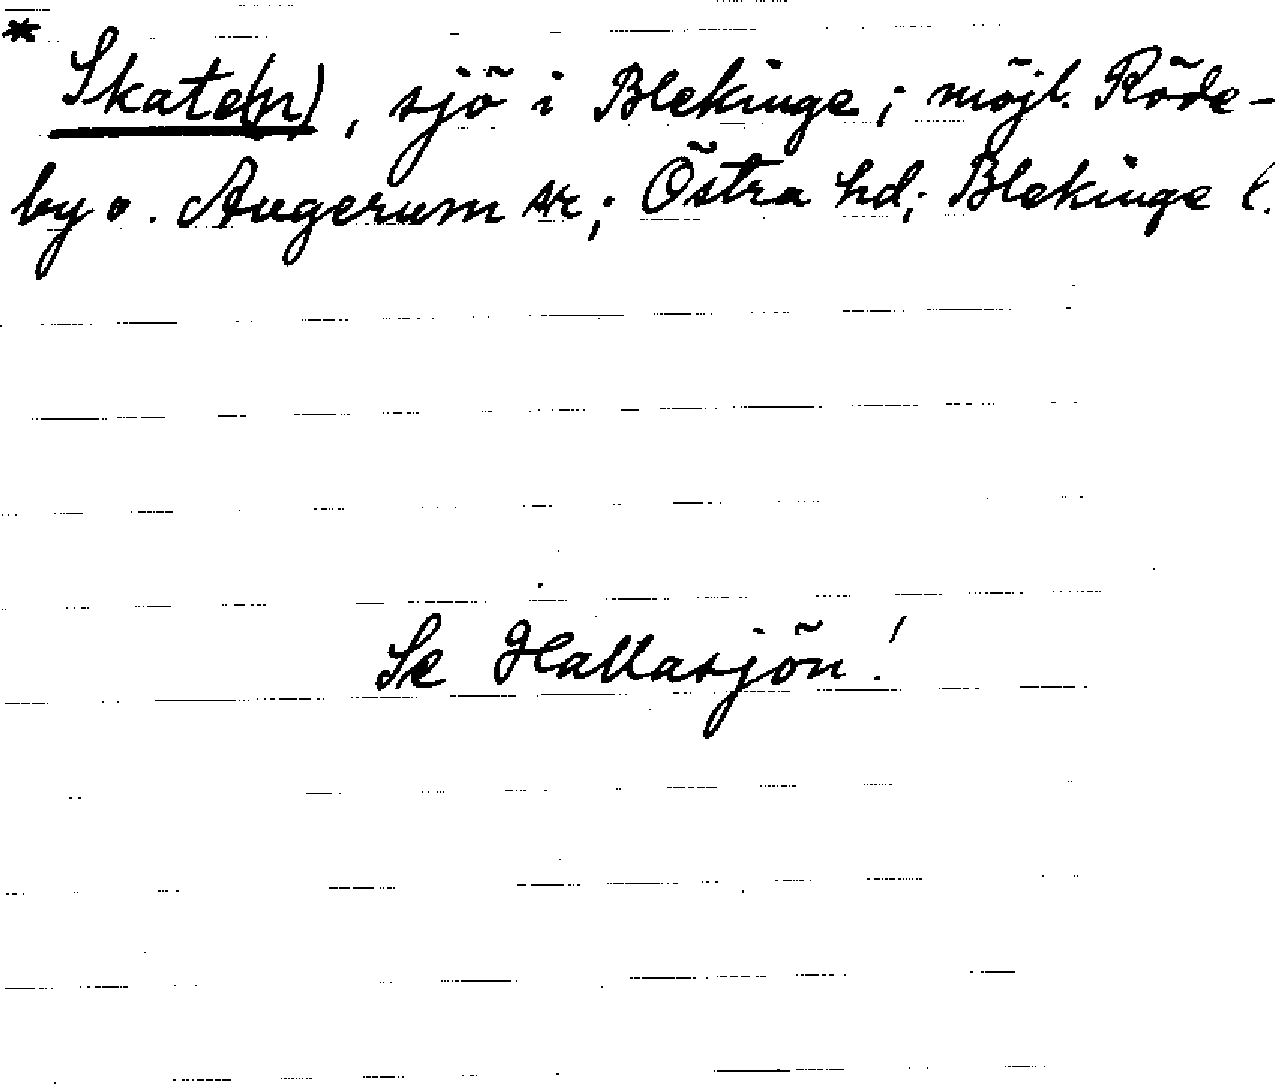 * Skate(n), sjö i Blekinge; möjl. Röde-
by o. Augerum sr; Östra hd; Blekinge l.
Se Hallasjön!